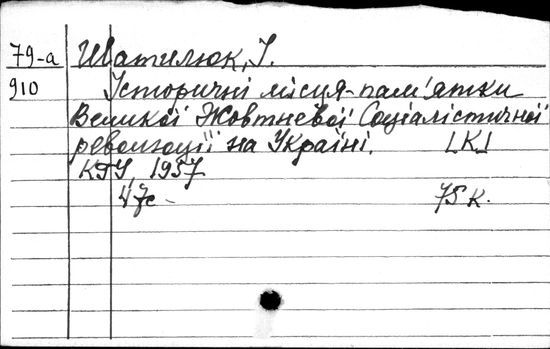 79-а Шатилюк, І.
910 Історичні місця-пам'ятки
Великої Жовтневої Соціалістичної
революції на Україні. [К.]
КДУ, 1957
47с - 75 к.